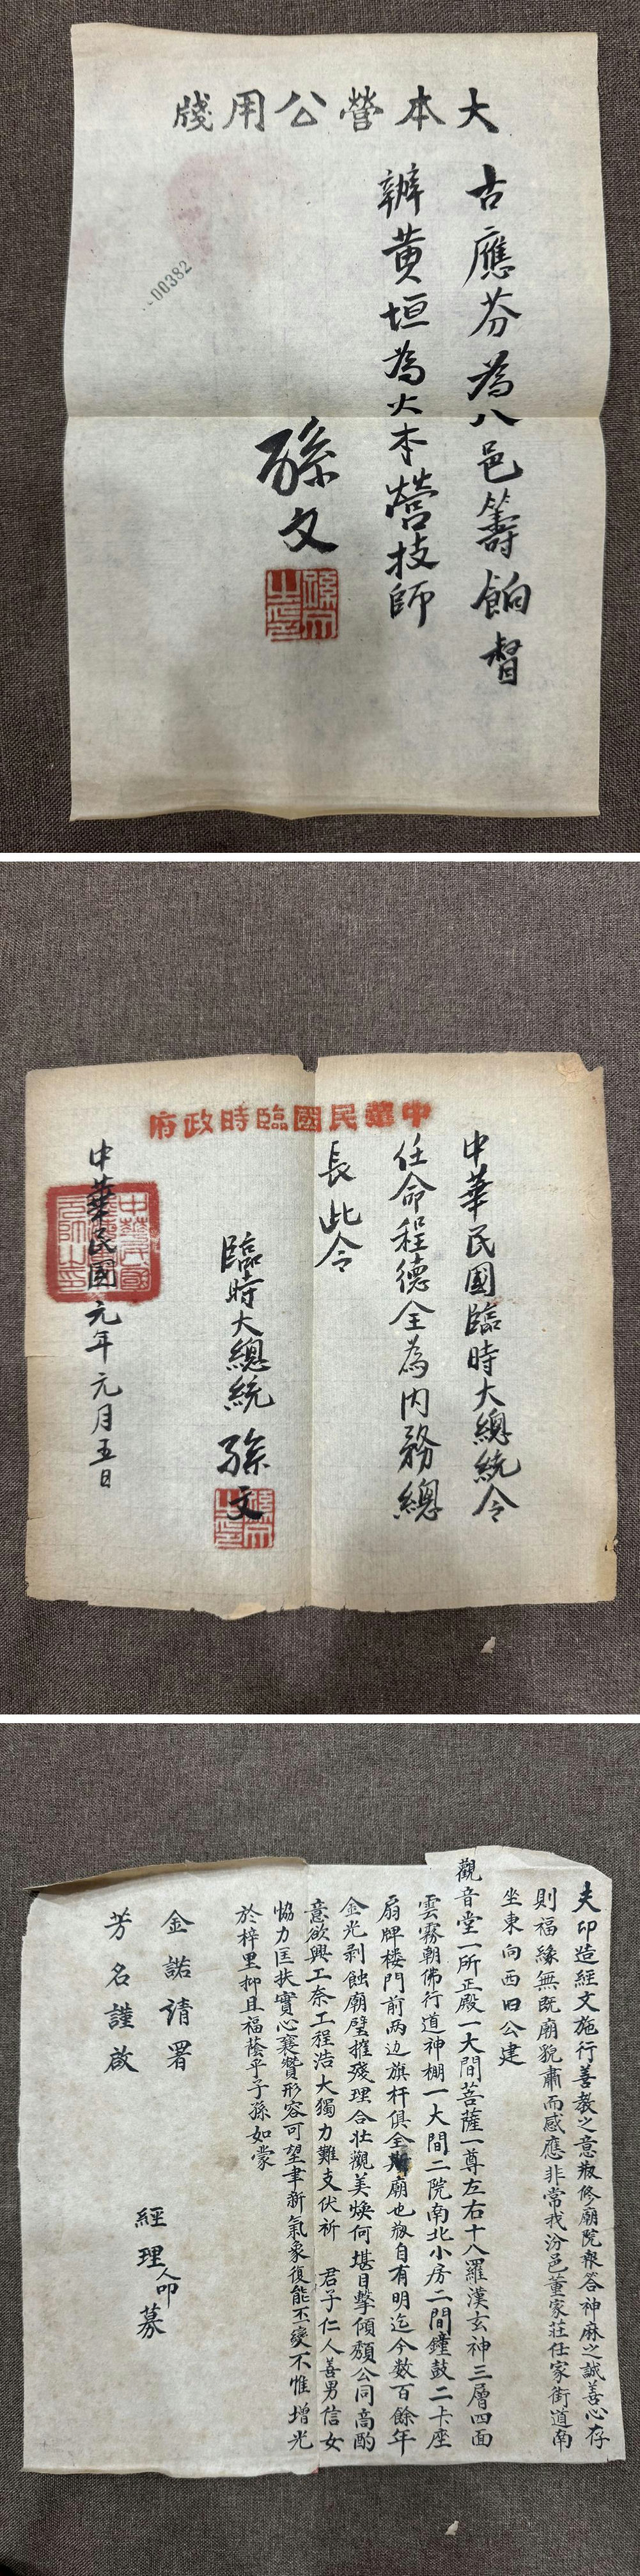 大本營公用牋
古應芬為八邑籌餉督
辦黄垣為大本營技師
孫文
孫文之印
00382
中華民國臨時政府
中華民國臨時大總統令
任命程德全為内務總
長此令
臨時大總統孫文
孫文之印
中華民國元年元月五日
夫印造經文施行善教之意叛修廟院報答神庥之誠善心存
則福緣無既廟貌肅而感應非常我汾邑董家莊任家街道南
坐東向西旧公建
觀音堂一所正殿一大間菩薩一尊左右十八羅漢玄神三層四面
雲霧朝佛行道神棚一大間二院南北小房二間鐘鼓二卡座
扇牌楼門前两边旗杆俱全斯廟也叛自有明迄今数百餘年
金光剥蝕廟壁摧殘理合壮觀美焕何堪目擊傾頽公同高酌
意欲興工奈工程浩大獨力難支伏祈 君子仁人善男信女
恊力匡扶實心襄贊形容可望聿新氣象復能丕變不惟增光
於梓里抑且福蔭乎子孫如蒙
金諾請署
芳名謹啟
經理人 印募